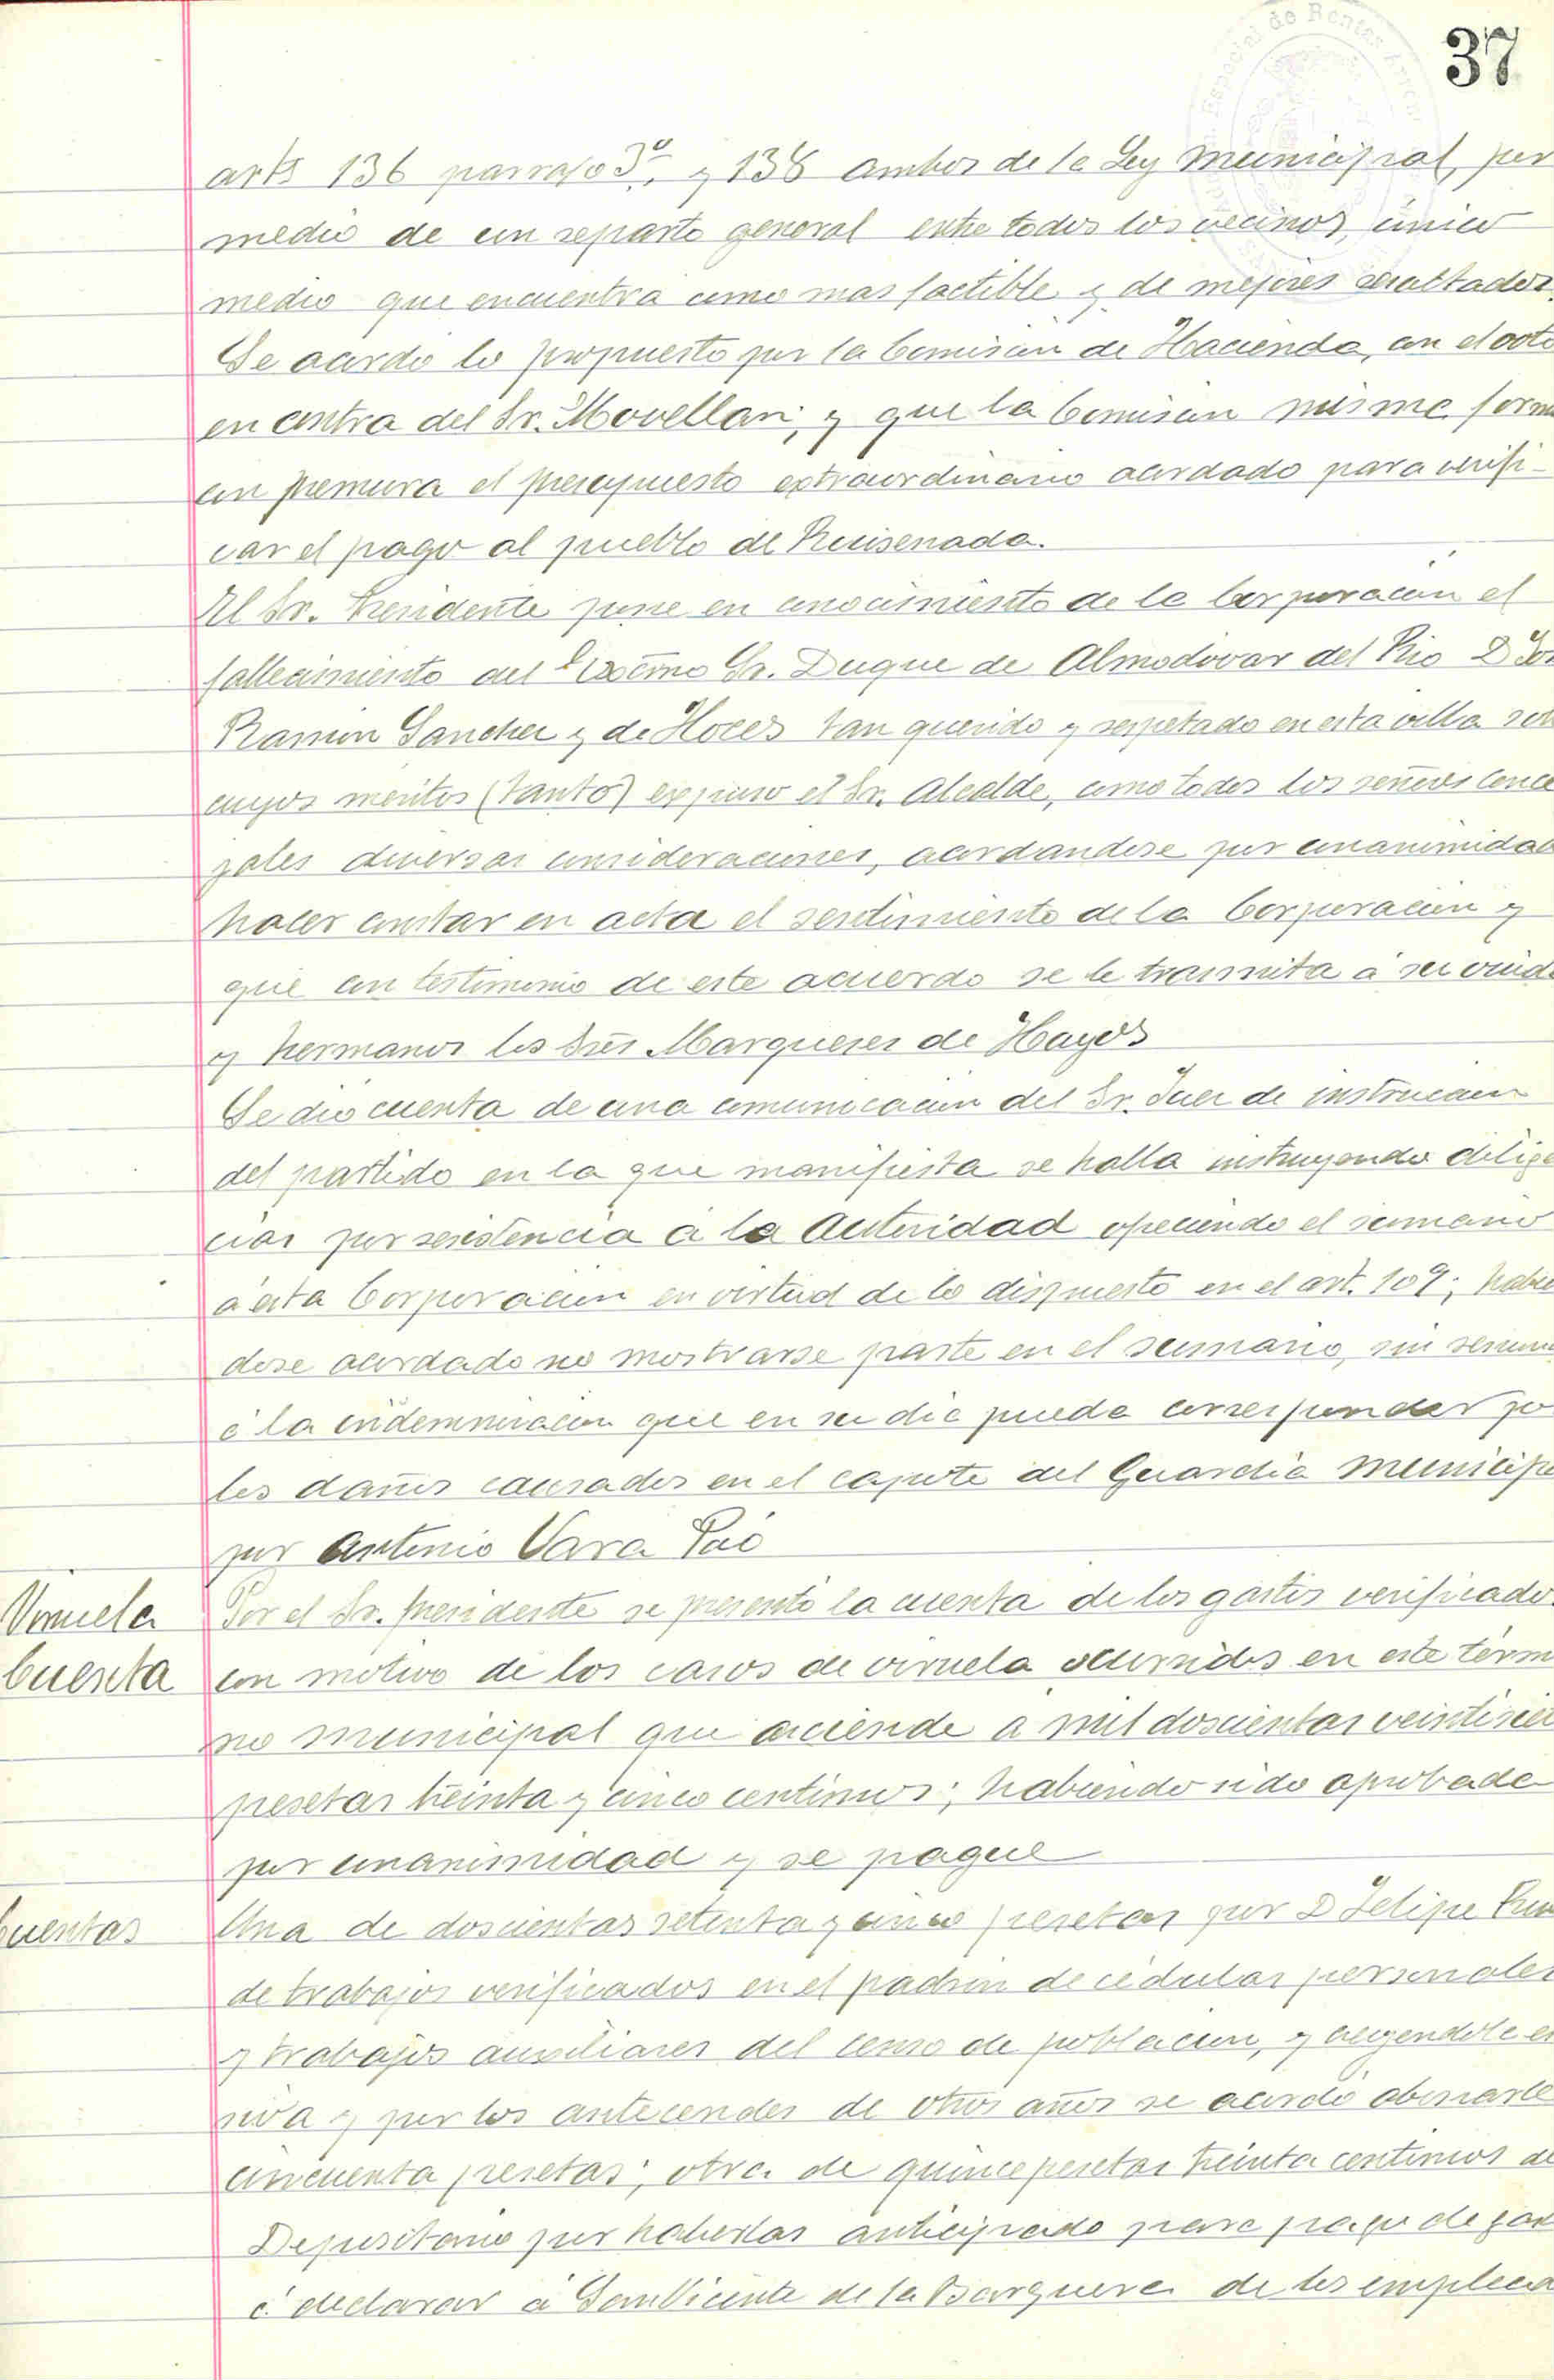 37
arts 136 parrafo 3º, y 138 ambos de la Ley municipal, por
medio de un reparto general entre todos los vecinos, unico
medio que encuentra como mas factible y de mejores resultados.
Se acordo lo propuesto por la Comision de Hacienda, con el voto
en contra del Sr. Movellan; y que la Comision misma forme
con premura el presupuesto extraordinario acordado para verifi-
car el pago al pueblo de Ruisenada.
El Sr. Presidente pone en conocimiento de la Corporacion el
fallecimiento del Excmo Sr. Duque de Almodovar del Rio D Jos
Ramon Sanchez y de Hoces tan querido y respetado en esta villa
cuyos meritos (tanto) expuso el Sr. Alcalde, como todos los señores conce
jales diversas consideraciones, acordandose por unanimidad
hacer constar en acta el sentimiento de la Corporacion y
que un testimonio de este acuerdo se le transmita á su viuda
y hermanos los Sres Marqueses de Hoyos
Se dio cuenta de una comunicacion del Sr. Juez de instrucion
del partido en la que manifiesta se halla instruyendo dilige
cias por resistencia á la Autoridad ofreciendo el sumario
á esta Corporacion en virtud de lo dispuesto en el art. 109; habie
dose acordado no mostrarse parte en el sumario, sin renun
á la indemnizacion que en su dia pueda corresponder po
los daños causados en el capote del Guardia municipa
por Antonio Vara
Viruela
Cuenta
Por el Sr. Presidente se presentó la cuenta de los gastos verificados
con motivo de los casos de viruela ocurridos en este térm
no municipal que asciende a mil doscientas veintiseis
pesetas treinta y cinco centimos; habiendo sido aprobada
por unanimidad y se pague
Cuentas
Una de doscientas setenta y cinco pesetas por D Felipe
de trabajos verificados en el padron de cédulas personales
y trabajos auxiliares del censo de poblacion, y
y por los antecendes de otros años se acordó abonarle
cincuenta pesetas; otra de quince pesetas treinta centimos de
Depositario por haberlas anticipado para pago de gas
á declarar á San Vicente de la Barquera de los emplea